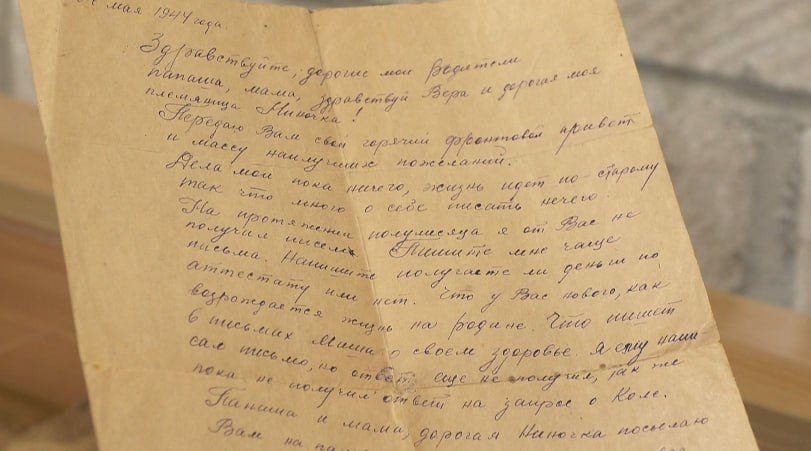 мая 1944 года.
Здравствуйте, дорогие мои родители
папаша, мама, здравствуй Вера и дорогая моя
племяница Ниночка!
Передаю Вам свой горячий фронтовой привет
и массу наилучших пожеланий.
Дела мои пока ничего, жизнь идет по-старому
так что много о себе писать нечего.
На протяжении полумесяца я от Вас не
получил писем. Пишите мне чаще
письма. Напишите получаете ли деньги по
аттестату или нет. Что у Вас нового, как
возрождается жизнь на родине. Что пишет
в письмах Миша о своем здоровье. Я ему напи-
сал письмо, но ответ еще не получил, так же
пока не получил ответ на запрос о Коле.
Папаша и мама, дорогая Ниночка посылаю
Вам на